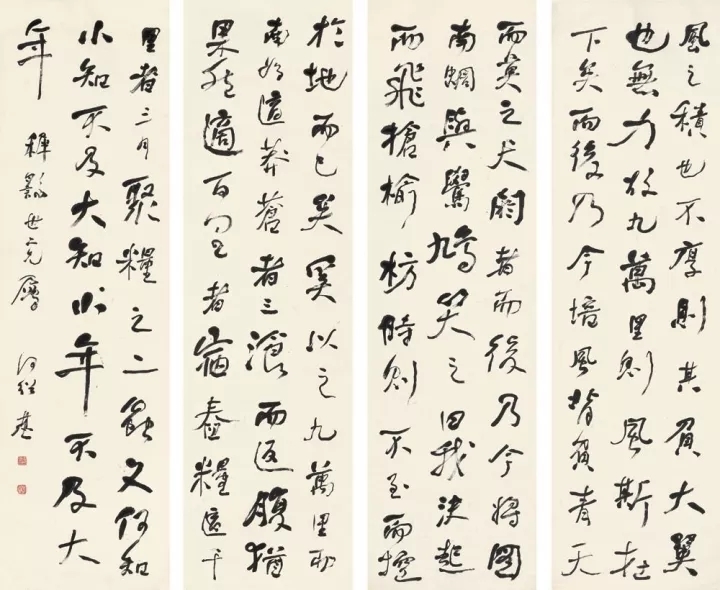 風之積也不厚則其負大翼
也無力故九萬里則風斯在
下矣而後乃今培風背負青天
而莫之夭閼者而後乃今將圖
南蜩與鷽鳩笑之曰我決起
而飛槍榆枋時則不至而控
於地而已矣奚以之九萬里而
南為適莽蒼者三飡而返腹猶
果然適百里者宿舂糧適千
里者三月聚糧之二蟲又何知
小知不及大知小年不及大
年 世兄屬 何紹基